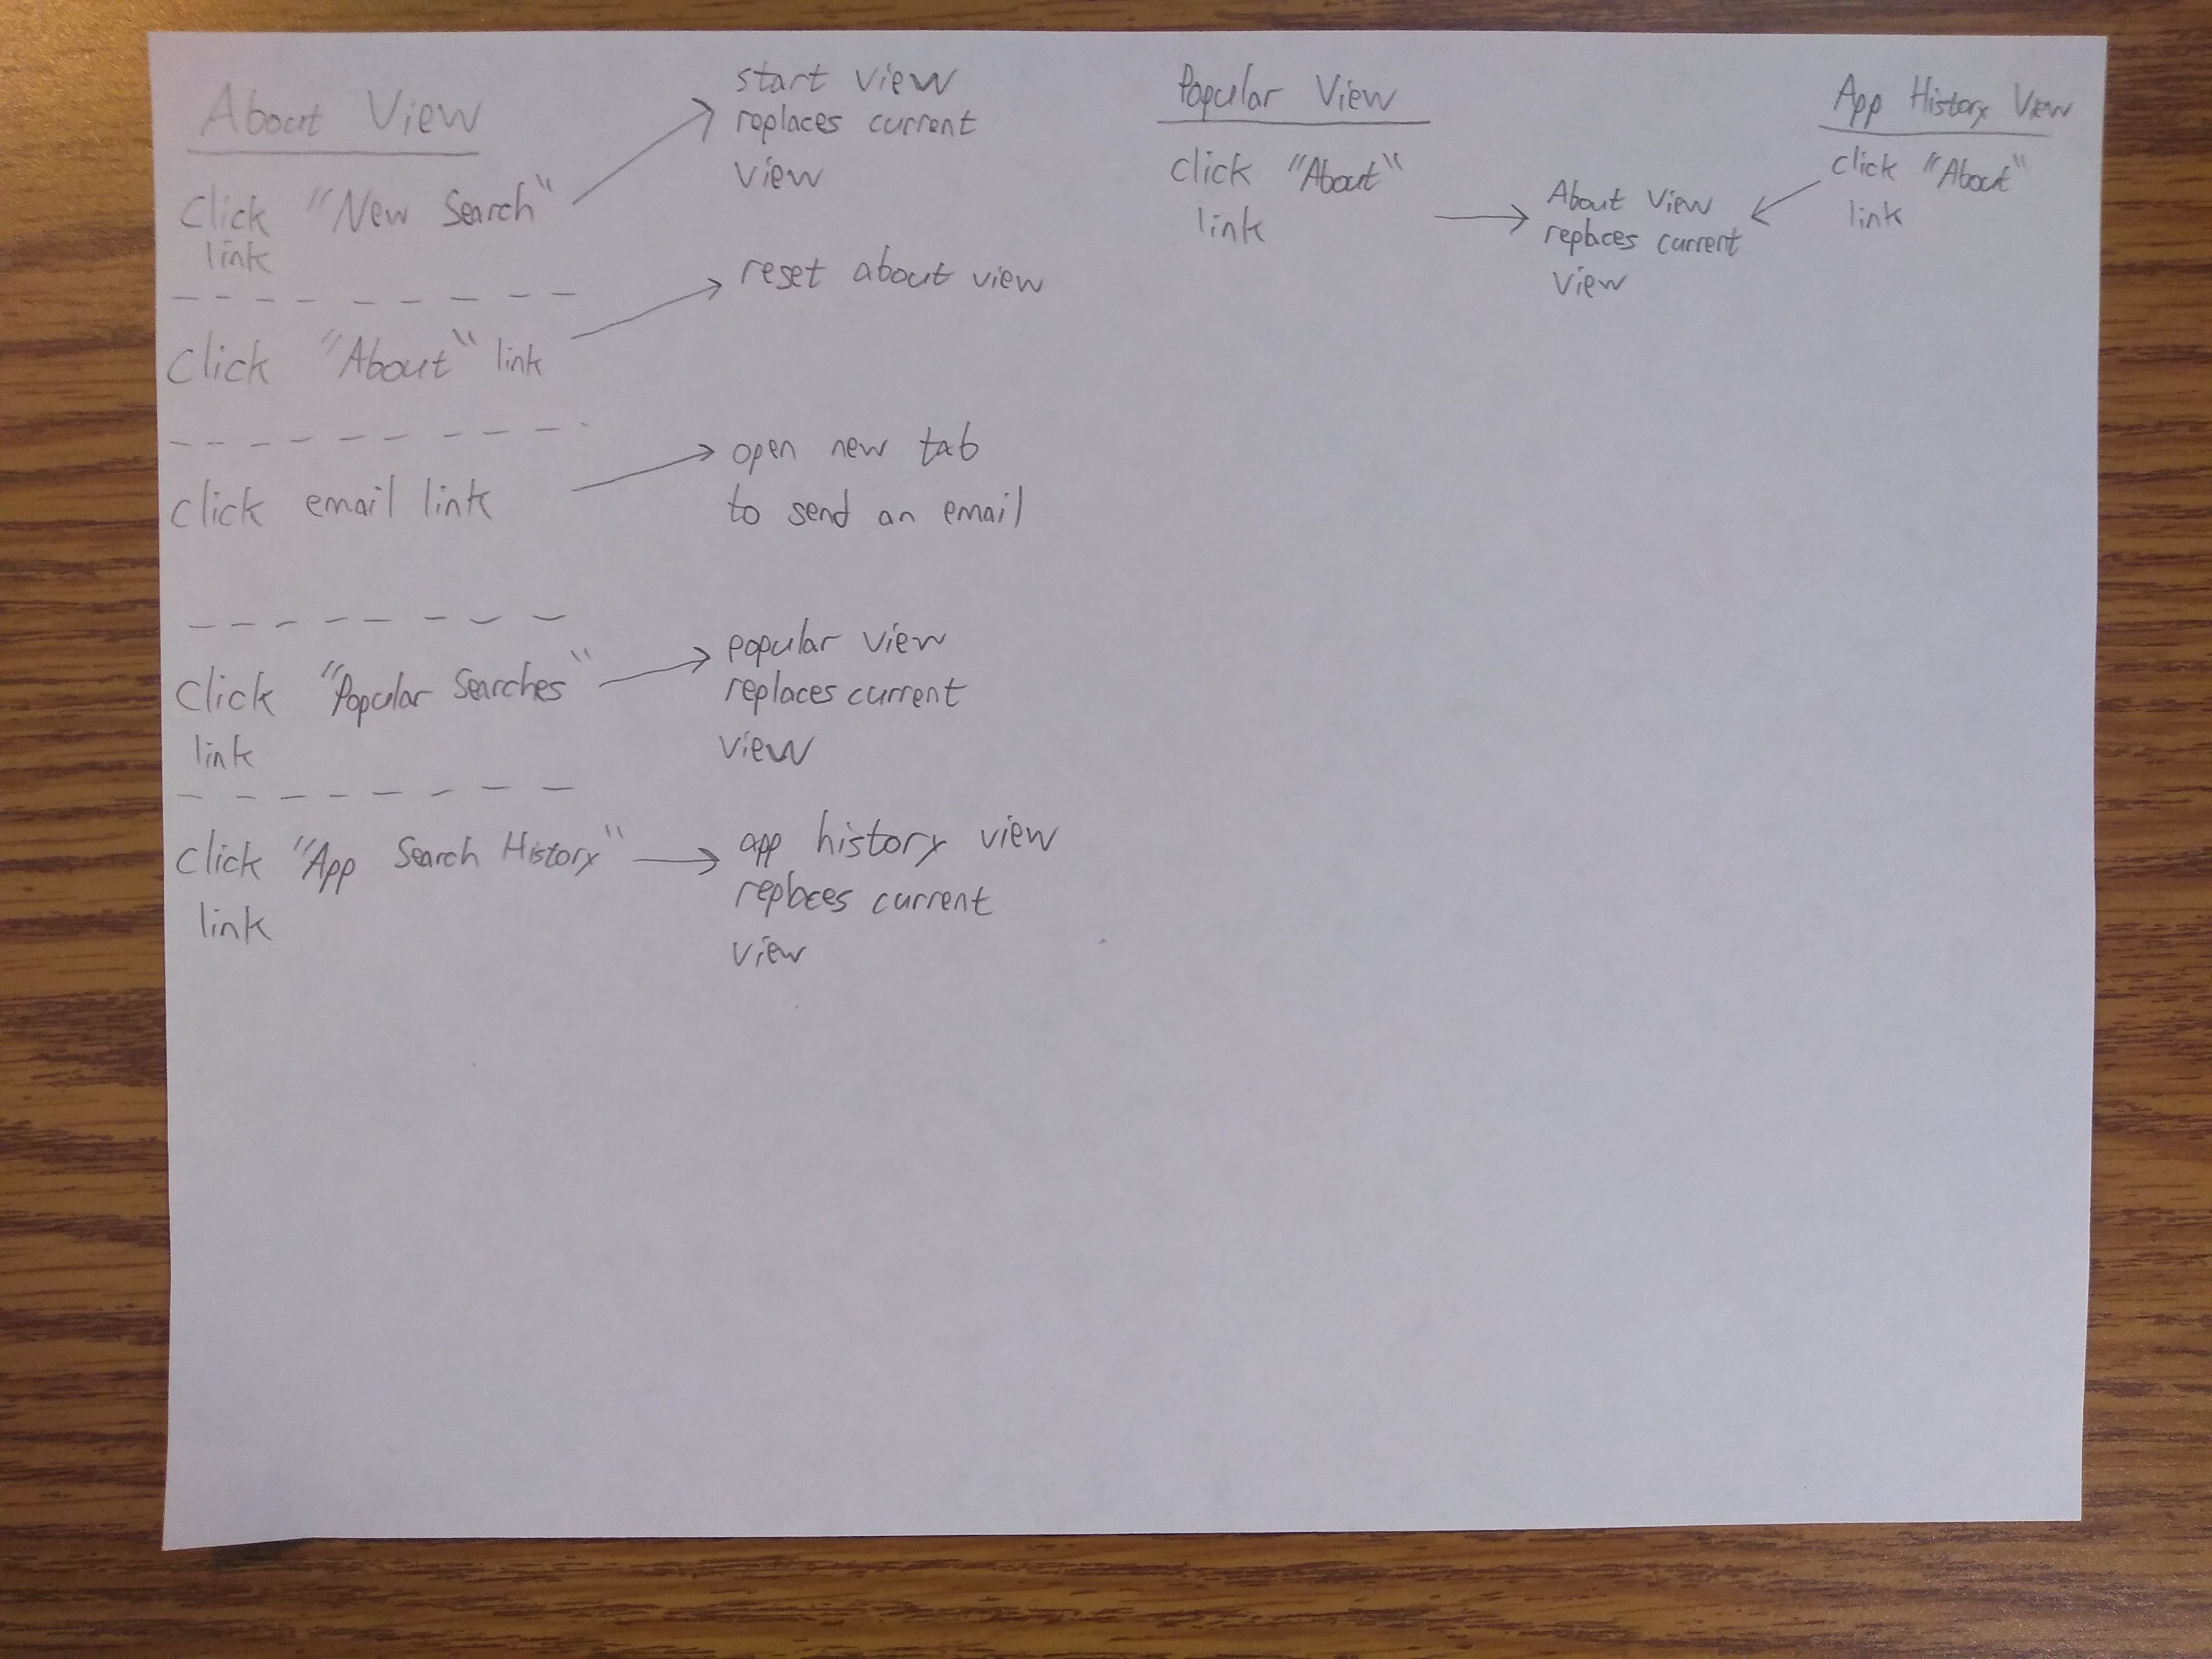 About View
Click "New Search"
link
start view
replaces current
view
Click "About" link
reset about view
click email link
open new tab
to send an email
Click "Popular Searches"
link
popular view
replaces current
view
Click "App Search History"
link
app history view
replaces current
view
Popular View
click "About"
link
About View
replaces current
view
App History View
click "About"
link